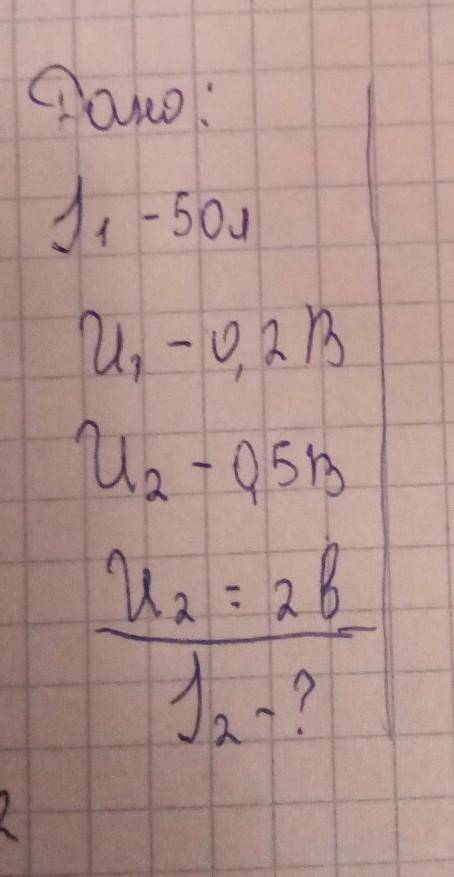 Дано:
J₁ - 50л
U₁ - 0,2 В
U₂ - 0,5 В
U₂ = 2 в
J₂ - ?
2